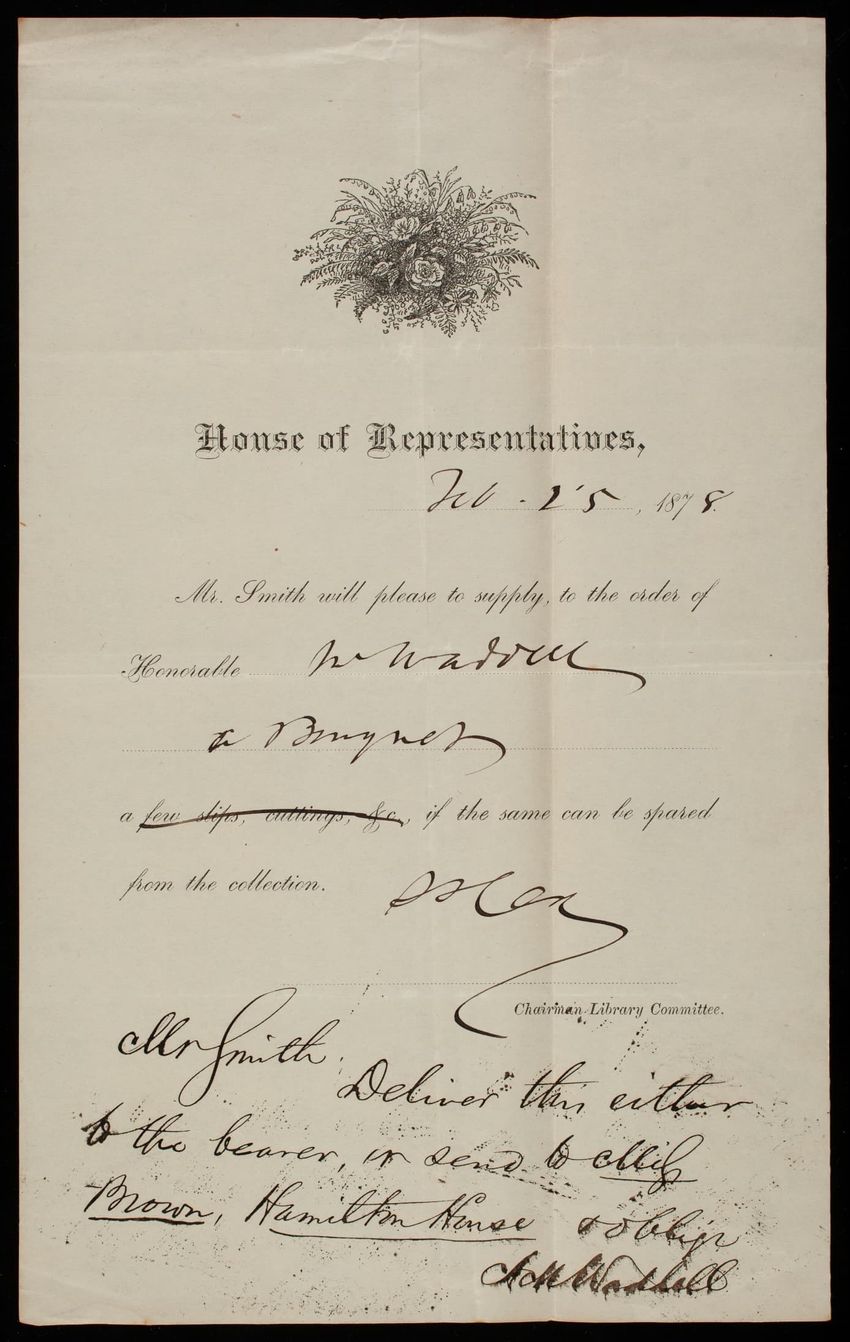 House of Representatives,
Feb. 25, 1878.
Mr. Smith will please to supply, to the order of
Honorable Mr Waddell
a Bouquet
a few slips, cuttings, &c., if the same can be spared
from the collection.
S S Cox
Chairman Library Committee.
Mr Smith.
Deliver this either
to the bearer, or send to Miss
Brown, Hamilton House & oblige
A M Waddell